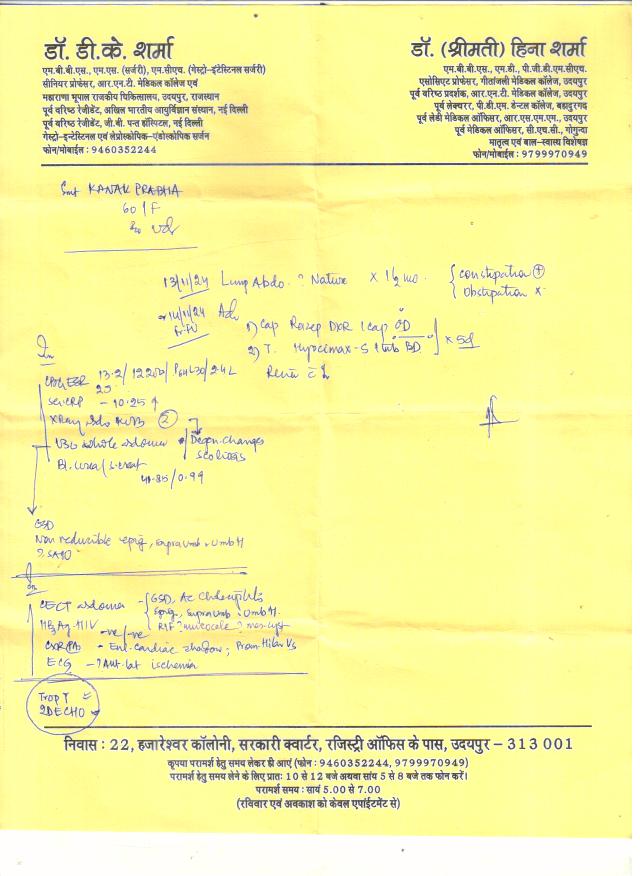 डॉ. डी.के. शर्मा
एम.बी.बी.एस., एम.एस. (सर्जरी), एम.सीएच. (गेस्ट्रो-इंटेस्टिनल सर्जरी)
सीनियर प्रोफेसर, आर.एन.टी. मेडिकल कॉलेज एवं
महाराणा भूपाल राजकीय चिकित्सालय, उदयपुर, राजस्थान
पूर्व वरिष्ठ रेजीडेंट, अखिल भारतीय आयुर्विज्ञान संस्थान, नई दिल्ली
पूर्व वरिष्ठ रेजीडेंट, जी.बी. पन्त हॉस्पिटल, नई दिल्ली
गेस्ट्रो-इन्टेस्टिनल एवं लेप्रोस्कोपिक-एंडोस्कोपिक सर्जन
फोन/मोबाईल : 9460352244
डॉ. (श्रीमती) हिना शर्मा
एम.बी.बी.एस., एम.डी., पी.जी.डी.एम.सीएच.
एसोसिएट प्रोफेसर, गीतांजली मेडिकल कॉलेज, उदयपुर
पूर्व वरिष्ठ प्रदर्शक, आर.एन.टी. मेडिकल कॉलेज, उदयपुर
पूर्व लेक्चरर, पी.डी.एम. डेन्टल कॉलेज, बहादुरगढ़
पूर्व लेडी मेडिकल ऑफिसर, आर.एस.एम.एम., उदयपुर
पूर्व मेडिकल ऑफिसर, सी.एच.सी., गोगुन्दा
मातृत्व एवं बाल-स्वास्थ्य विशेषज्ञ
फोन/मोबाईल : 9799970949
Smt KANAK PRABHA
60/F
Udr
13/11/24 Lump Abdo. ? Nature × 1½ mo. { Constipation ⊕
Obstipation ×
14/11/24 Adv
1) Cap Rasep DXR 1 cap OD
2) T. Hypocimax-S 1 tab BD ] × 5d
CBC/ESR 13.2/12200/
25
Ser.CRP - 10.25 ↑
XRay Abdo KUB ② → Degen. Changes
Scoliosis
USG whole abdomen
Bl. urea/s.creat
40.85/0.99
GSD
Non reducible epig, supraumb, Umb H
? SAIO
CECT abdomen - { GSD, Ac Cholecystitis
Epig, Supraumb, Umb H.
RIF ? mucocele ? mes. cyst
HBsAg, HIV -ve/-ve
CXR (PA) - Enl. cardiac shadow; Prom Hilar Vs
ECG - ? Ant. lat ischemia
Trop T
2DECHO
निवास : 22, हजारेश्वर कॉलोनी, सरकारी क्वार्टर, रजिस्ट्री ऑफिस के पास, उदयपुर – 313 001
कृपया परामर्श हेतु समय लेकर ही आएं (फोन : 9460352244, 9799970949)
परामर्श हेतु समय लेने के लिए प्रातः 10 से 12 बजे अथवा सांय 5 से 8 बजे तक फोन करें।
परामर्श समय : सायं 5.00 से 7.00
(रविवार एवं अवकाश को केवल एपॉईंटमेंट से)